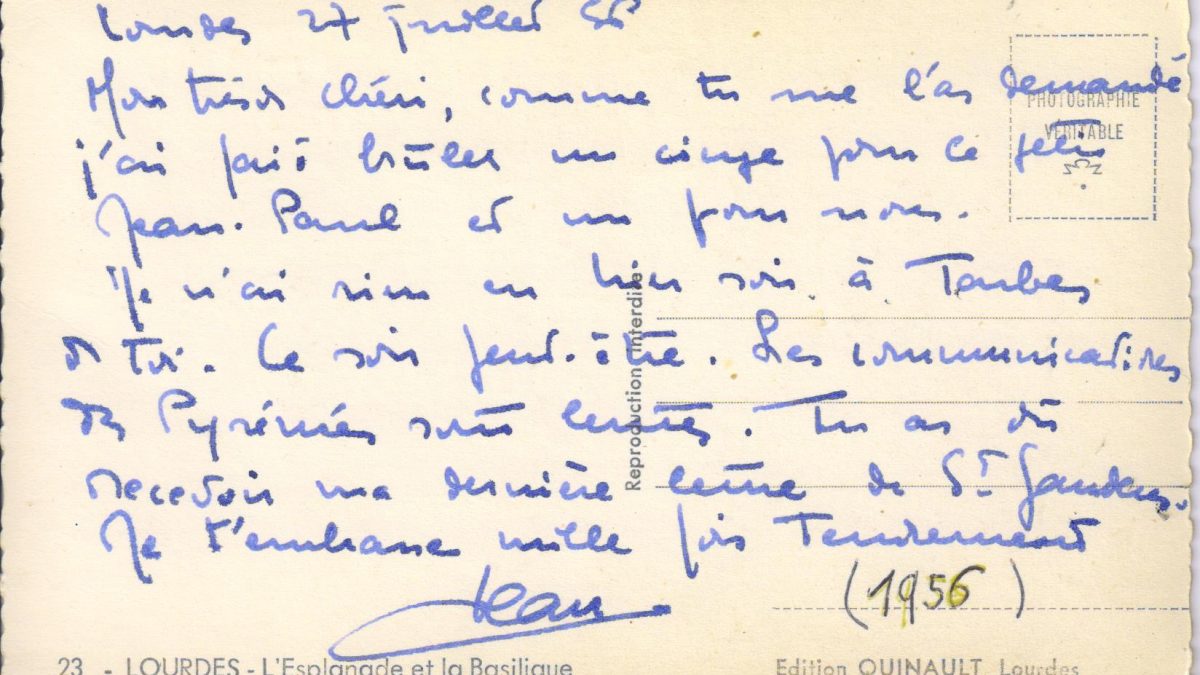 Lourdes 27 juillet 56
Mon trésor chéri, comme tu me l'as demandé
j'ai fait brûler un cierge pour le petit
Jean-Paul et un pour nous.
Je n'ai rien eu hier soir à Tarbes
de toi. Ce soir peut-être. Les communications
des Pyrénées sont lentes. Tu as dû
recevoir ma dernière lettre de St Gaudens.
Je t'embrasse mille fois tendrement
Jean
(1956)
PHOTOGRAPHIE
VÉRITABLE
Reproduction interdite
23 - LOURDES - L'Esplanade et la Basilique
Edition QUINAULT Lourdes